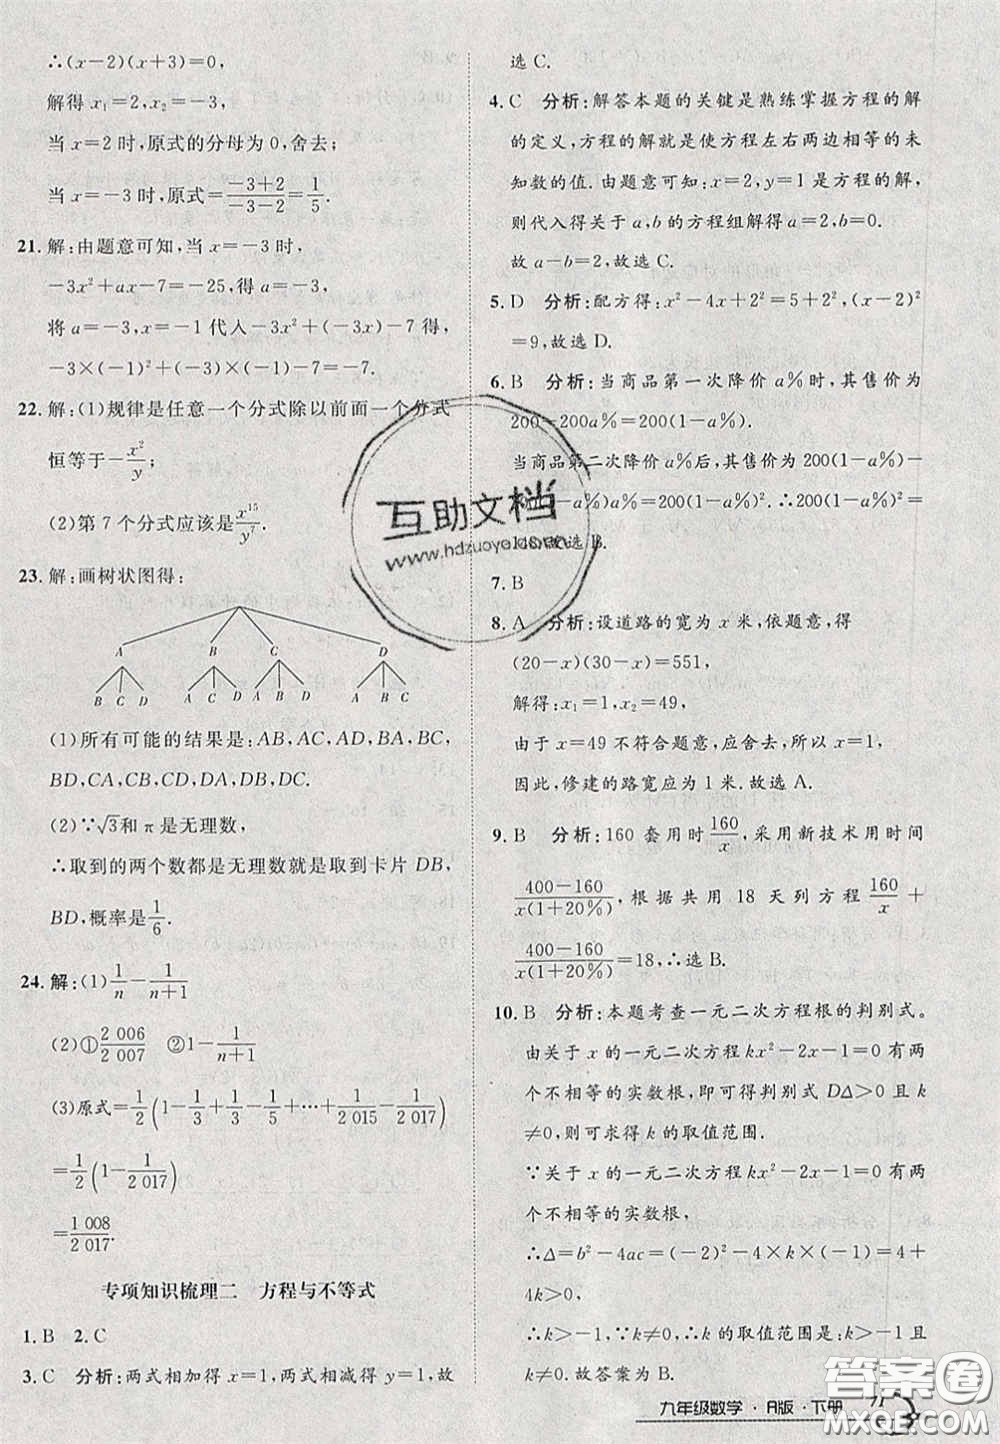 ∴(x-2)(x+3)=0,
解得x₁=2,x₂=-3,
当x=2时,原式的分母为0,舍去;
当x=-3时,原式=\frac{-3+2}{-3-2}=\frac{1}{5}.
21.解:由题意可知,当x=-3时,
-3x²+ax-7=-25,得a=-3,
将a=-3,x=-1代入-3x²+(-3)x-7得,
-3×(-1)²+(-3)×(-1)-7=-7.
22.解:(1)规律是任意一个分式除以前面一个分式
恒等于-\frac{x²}{y};
(2)第7个分式应该是\frac{x^{15}}{y^{7}}.
23.解:画树状图得:
A B C D
B C D A C D A B D A B C
(1)所有可能的结果是:AB,AC,AD,BA,BC,
BD,CA,CB,CD,DA,DB,DC.
(2)∵√3和π是无理数,
∴取到的两个数都是无理数就是取到卡片DB,
BD,概率是\frac{1}{6}.
24.解:(1)\frac{1}{n}-\frac{1}{n+1}
(2)①\frac{2 006}{2 007} ②1-\frac{1}{n+1}
(3)原式=\frac{1}{2}(1-\frac{1}{3}+\frac{1}{3}-\frac{1}{5}+…+\frac{1}{2 015}-\frac{1}{2 017})
=\frac{1}{2}(1-\frac{1}{2 017})
=\frac{1 008}{2 017}.
专项知识梳理二 方程与不等式
1.B 2.C
3.C 分析:两式相加得x=1,两式相减得y=1,故
选C.
4.C 分析:解答本题的关键是熟练掌握方程的解
的定义,方程的解就是使方程左右两边相等的未
知数的值.由题意可知:x=2,y=1是方程的解,
则代入得关于a,b的方程组解得a=2,b=0.
故a-b=2,故选C.
5.D 分析:配方得:x²-4x+2²=5+2²,(x-2)²
=9,故选D.
6.B 分析:当商品第一次降价a%时,其售价为
200-200a%=200(1-a%).
当商品第二次降价a%后,其售价为200(1-a%)
-200(1-a%)a%=200(1-a%)².∴200(1-a%)²=
148.故选B.
7.B
8.A 分析:设道路的宽为x米,依题意,得
(20-x)(30-x)=551,
解得:x₁=1,x₂=49,
由于x=49不符合题意,应舍去,所以x=1,
因此,修建的路宽应为1米.故选A.
9.B 分析:160套用时\frac{160}{x},采用新技术用时间
\frac{400-160}{x(1+20%)},根据共用18天列方程\frac{160}{x}+
\frac{400-160}{x(1+20%)}=18,∴选B.
10.B 分析:本题考查一元二次方程根的判别式。
由关于x的一元二次方程kx²-2x-1=0有两
个不相等的实数根,即可得判别式DΔ>0且k
≠0,则可求得k的取值范围.
∵关于x的一元二次方程kx²-2x-1=0有两
个不相等的实数根,
∴Δ=b²-4ac=(-2)²-4×k×(-1)=4+4k
>0,
∴k>-1,∵k≠0,∴k的取值范围是k>-1且k
≠0.故答案为B.
九年级数学·A版·下册 71
互助文档
www.hdzuoye.com
答案圈
MXQE.COM